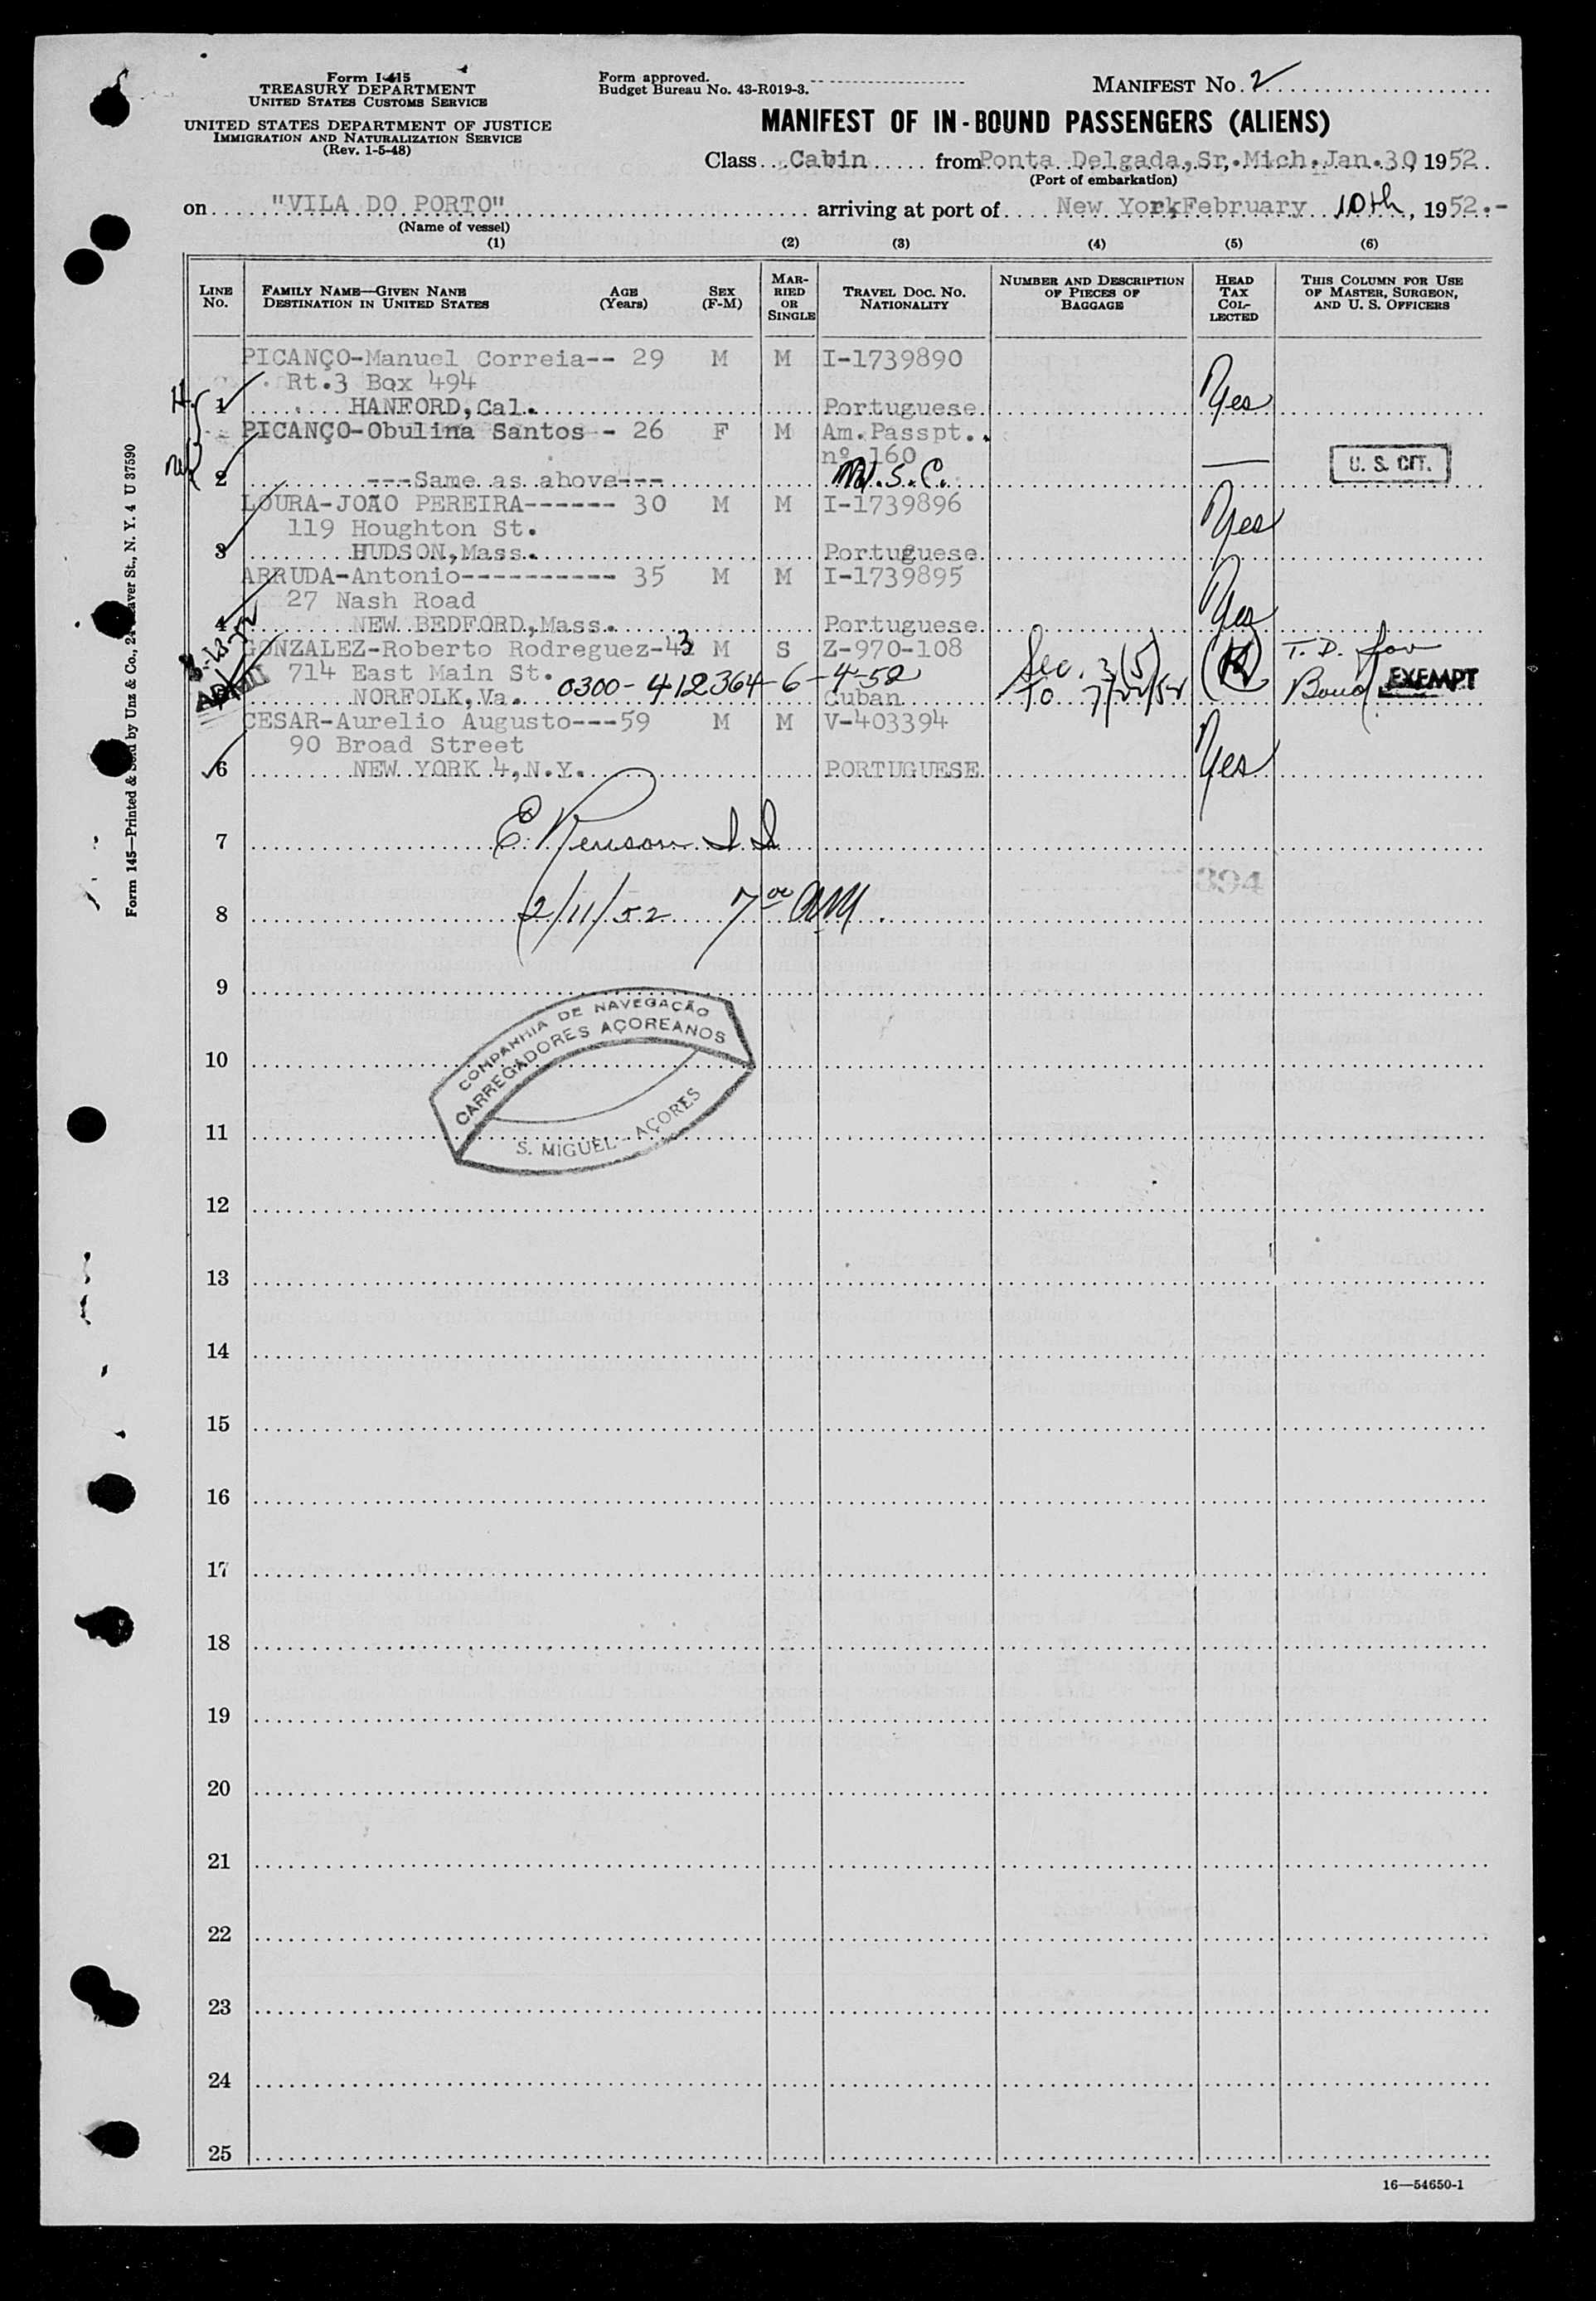 Form I-415
TREASURY DEPARTMENT
UNITED STATES CUSTOMS SERVICE
UNITED STATES DEPARTMENT OF JUSTICE
IMMIGRATION AND NATURALIZATION SERVICE
(Rev. 1-5-48)
Form approved.
Budget Bureau No. 43-R019-3.
MANIFEST No. 2
MANIFEST OF IN-BOUND PASSENGERS (ALIENS)
Class Cabin from Ponta Delgada, Sr, Mich. Jan. 30, 1952
(Port of embarkation)
on "VILA DO PORTO" arriving at port of New York, February 10th, 1952.-
(Name of vessel)
(1) (2) (3) (4) (5) (6)
LINE No. FAMILY NAME—GIVEN NAME DESTINATION IN UNITED STATES AGE (Years) SEX (F-M) MARRIED OR SINGLE TRAVEL DOC. NO. NATIONALITY NUMBER AND DESCRIPTION OF PIECES OF BAGGAGE HEAD TAX COLLECTED THIS COLUMN FOR USE OF MASTER, SURGEON, AND U. S. OFFICERS
PICANÇO-Manuel Correia-- 29 M M I-1739890
Rt.3 Box 494
1 HANFORD, Cal. Portuguese Yes
PICANÇO-Obulina Santos - 26 F M Am. Passpt.
nº 160
2 ---Same as above--- U. S. CIT.
LOURA-JOÃO PEREIRA------ 30 M M I-1739896
119 Houghton St.
3 HUDSON, Mass. Portuguese Yes
ARRUDA-Antonio---------- 35 M M I-1739895
27 Nash Road
4 NEW BEDFORD, Mass. Portuguese Yes
GONZALEZ-Roberto Rodreguez-43 M S Z-970-108
714 East Main St. 0300-412364-6-4-52 Sec. 3(5) T. D. for
NORFOLK, Va. Cuban To 7/22/52 Bond EXEMPT
CESAR-Aurelio Augusto---59 M M V-403394
90 Broad Street
6 NEW YORK 4, N.Y. PORTUGUESE Yes
7
394
8 2/11/52 7 00 AM
9
COMPANHIA DE NAVEGAÇÃO
CARREGADORES AÇOREANOS
S. MIGUEL - AÇORES
10
11
12
13
14
15
16
17
18
19
20
21
22
23
24
25
16—54650-1